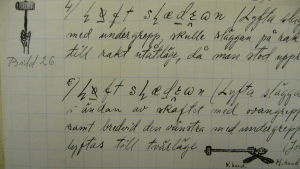 4) lyft slæden (Lyfta slä
med undergrepp, skulle släggan på rak
till rakt utåtläge, då man stod uppr
Bild 26.
c) lyft slæden (Lyfta slägga
i ändan av skaftet med ovangrepp
samt bredvid den vänstra med undergrepp
lyftas till tvärläge
V. hand H. hand